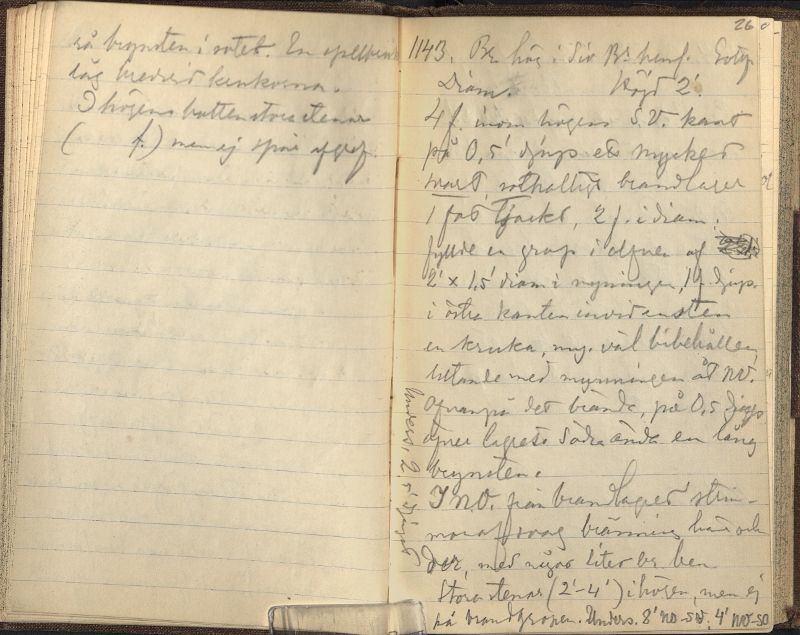 så brynsten i sotet. En
låg bredvid krukorna.
I högens botten stora stenar
( f.) men ej spår af graf.
26
1143. Br. hög i
Diam. Höjd 2'.
4 f. inom högens S.V. kant
på 0,5' djup ett mycket
svart, sothaltigt brandlager
1 fot tjockt, 2 f. i diam.,
fyllde en grop i elfven af
2' × 1,5' diam i mynningen, 1 f. djup.
i östra kanten invid en sten
en kruka, my. väl bibehållen,
lutande med mynningen åt NV.
Ofvanpå det brända, på 0,5 djup
öfver lagrets södra ända en lång
brynsten.
I NV. från brandlagret
af svag bränning här och
der, med något litet br. ben
Stora stenar (2'-4') i högen, men ej
på brandgropen. Unders. 8' NO-SV, 4' NV-SO
Unders. 2,5' djupt